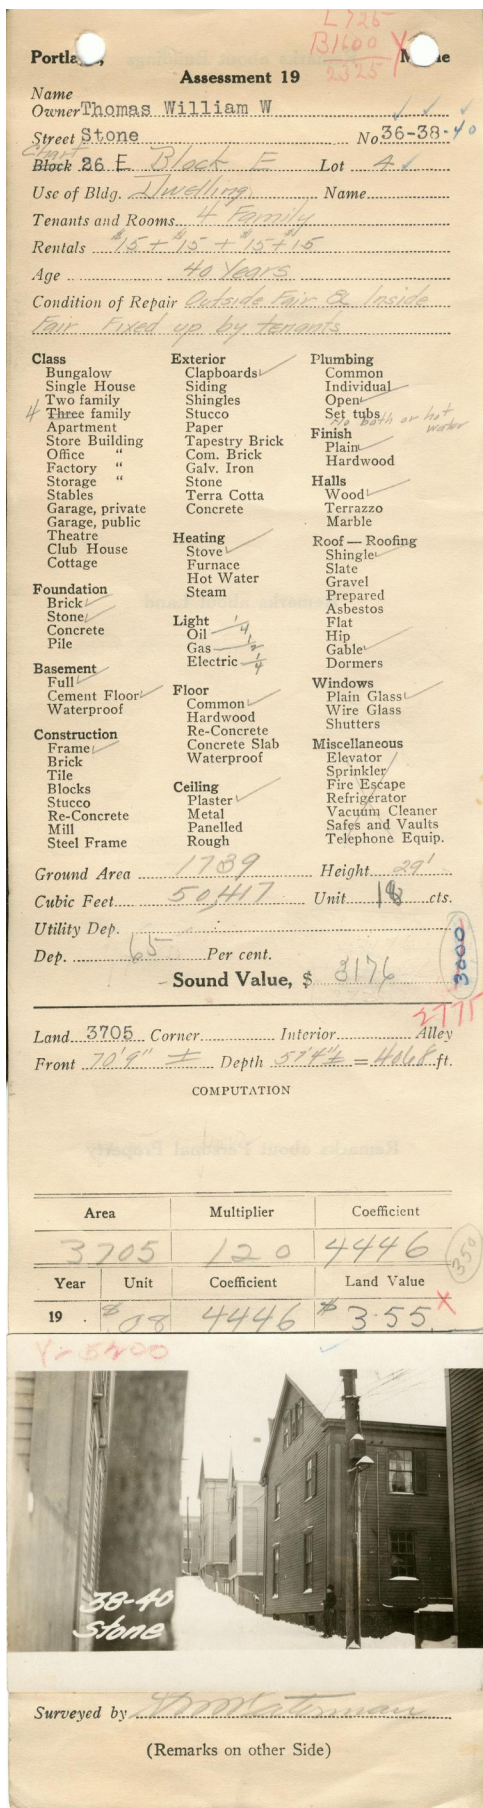 L 725
B1600
2325
Y
Portla , M ne
Assessment 19
Name
Owner Thomas William W
Street Stone No. 36-38-40
Chart
Block 26 E Block E Lot 4
Use of Bldg. Dwelling Name
Tenants and Rooms 4 Family
Rentals $15 + $15 + $15 + $15
Age 40 Years
Condition of Repair Outside Fair & Inside
Fair Fixed up by tenants
Class
Bungalow
Single House
Two family
4 Three family
Apartment
Store Building
Office "
Factory "
Storage "
Stables
Garage, private
Garage, public
Theatre
Club House
Cottage
Foundation
Brick
Stone
Concrete
Pile
Basement
Full
Cement Floor
Waterproof
Construction
Frame
Brick
Tile
Blocks
Stucco
Re-Concrete
Mill
Steel Frame
Exterior
Clapboards
Siding
Shingles
Stucco
Paper
Tapestry Brick
Com. Brick
Galv. Iron
Stone
Terra Cotta
Concrete
Heating
Stove
Furnace
Hot Water
Steam
Light
Oil 1/4
Gas 1/2
Electric 1/4
Floor
Common
Hardwood
Re-Concrete
Concrete Slab
Waterproof
Ceiling
Plaster
Metal
Panelled
Rough
Plumbing
Common
Individual
Open
Set tubs
No bath or hot
water
Finish
Plain
Hardwood
Halls
Wood
Terrazzo
Marble
Roof — Roofing
Shingle
Slate
Gravel
Prepared
Asbestos
Flat
Hip
Gable
Dormers
Windows
Plain Glass
Wire Glass
Shutters
Miscellaneous
Elevator
Sprinkler
Fire Escape
Refrigerator
Vacuum Cleaner
Safes and Vaults
Telephone Equip.
Ground Area 1739 Height 29'
Cubic Feet 50,417 Unit 18 cts.
Utility Dep.
Dep. 65 Per cent.
3000
Sound Value, $ 3176
2775
Land 3705 Corner Interior Alley
Front 70'9" ± Depth 57'4" ± = 4068 ft.
COMPUTATION
Area Multiplier Coefficient
3705 120 4446
350
Year Unit Coefficient Land Value
19 $.08 4446 $355 X
Y-5400
38-40
Stone
Surveyed by
(Remarks on other Side)